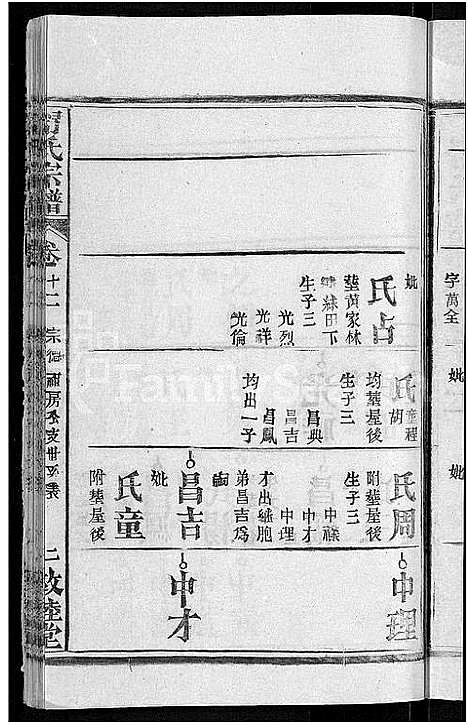 字萬全
妣
妣
妣
氏占
塟黃家林
田下
生子三
光烈
光祥
光倫
氏胡
程
均塟屋後
生子三
昌典
昌吉
昌鳳
均出一子
氏周
附塟屋後
生子三
中禄
中才
中理
才出継胞
弟昌吉爲
嗣
昌吉
妣
氏童
附塟屋後
中理
中才
氏宗譜
卷十二
宗德
房
二
敦睦堂